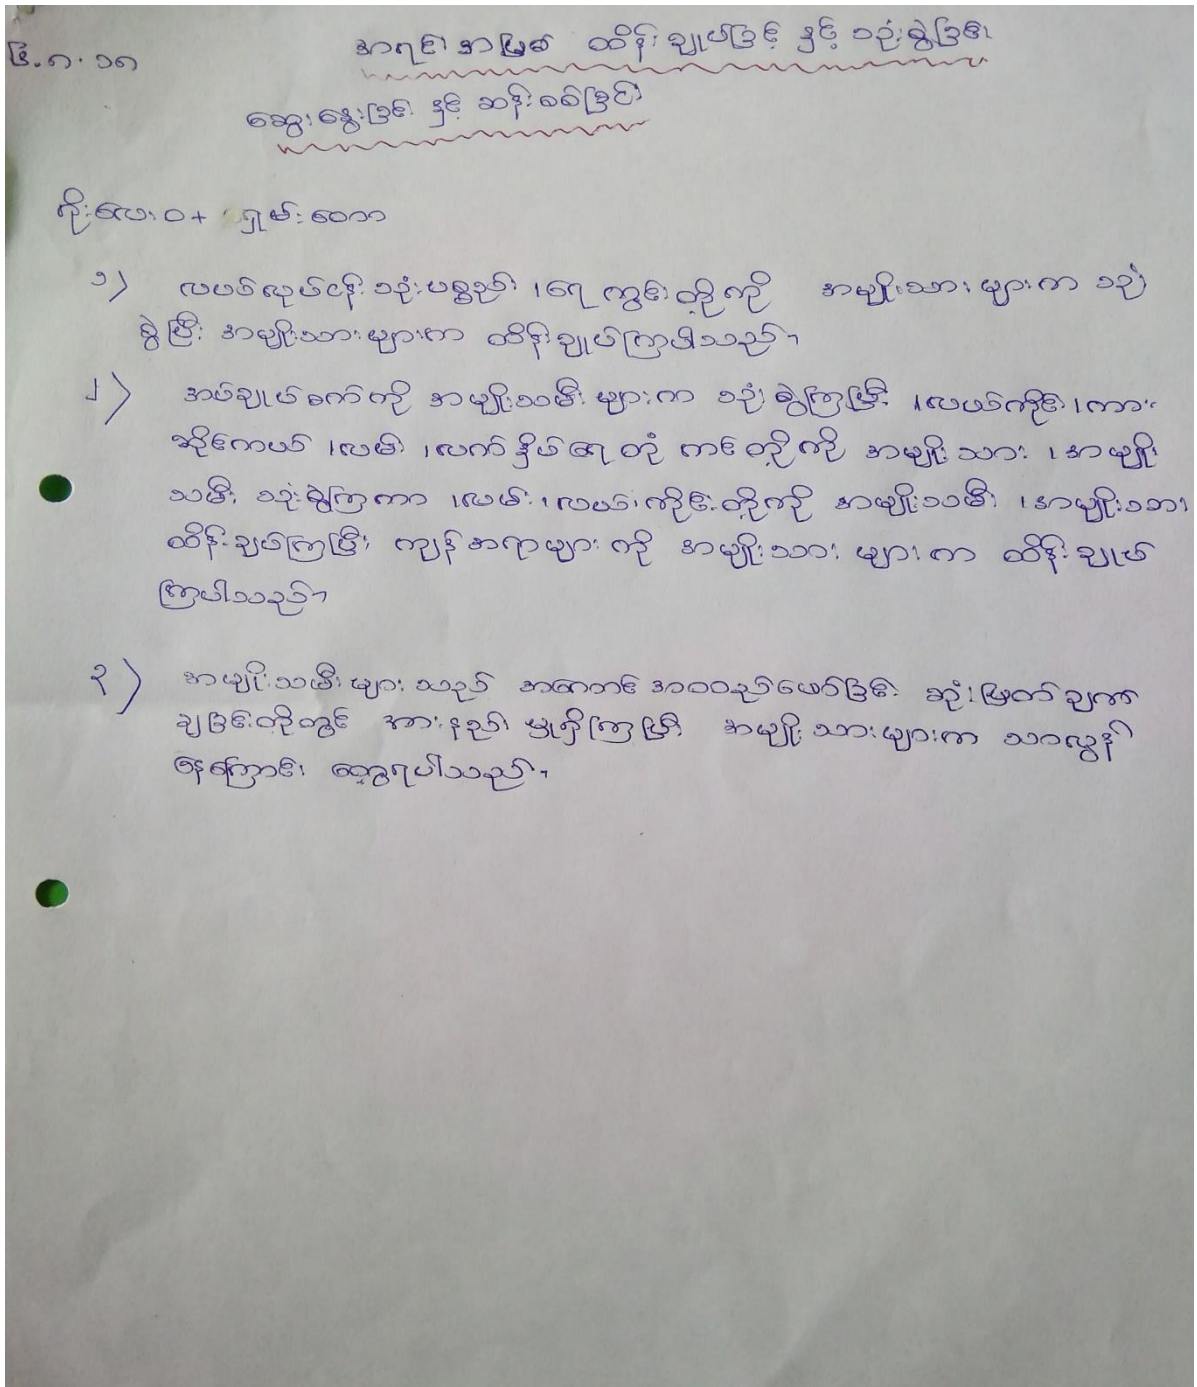 ၆.၈.၁၈
အရင်းအမြစ် ထိန်းချုပ်ခြင်း နှင့် သုံးစွဲခြင်း
ဆွေးနွေးခြင်း နှင့် ဆန်းစစ်ခြင်း
ကိုးလေးဝ + ရှမ်းတောာ
၁) လုပ်ငန်းသုံးပစ္စည်း ၊ရေကွင်းတို့ကို အမျိုးသားများက သုံး
စွဲပြီး အမျိုးသားများက ထိန်းချုပ်ကြပါသည်။
၂) အပ်ချုပ်စက်ကို အမျိုးသမီးများက သုံးစွဲကြပြီး ၊လယ်ကိုင်း၊ကား
ဆိုင်ကယ် ၊လမ်း ၊လက်နှိပ်ရေတုံကင်တို့ကို အမျိုးသား ၊အမျိုး
သမီး သုံးစွဲကြကာ ၊လမ်း၊လယ်၊ကိုင်းတို့ကို အမျိုးသမီး ၊အမျိုးသား
ထိန်းချုပ်ကြပြီး ကျန်အရာများကို အမျိုးသားများက ထိန်းချုပ်
ကြပါသည်။
၃) အမျိုးသမီးများသည် အစည်းအဝေး ဆုံးဖြတ်ချက်
ချခြင်းတို့တွင် အားနည်းမှုရှိကြပြီး အမျိုးသားများက သာလွန်
နေကြောင်း တွေ့ရပါသည်။